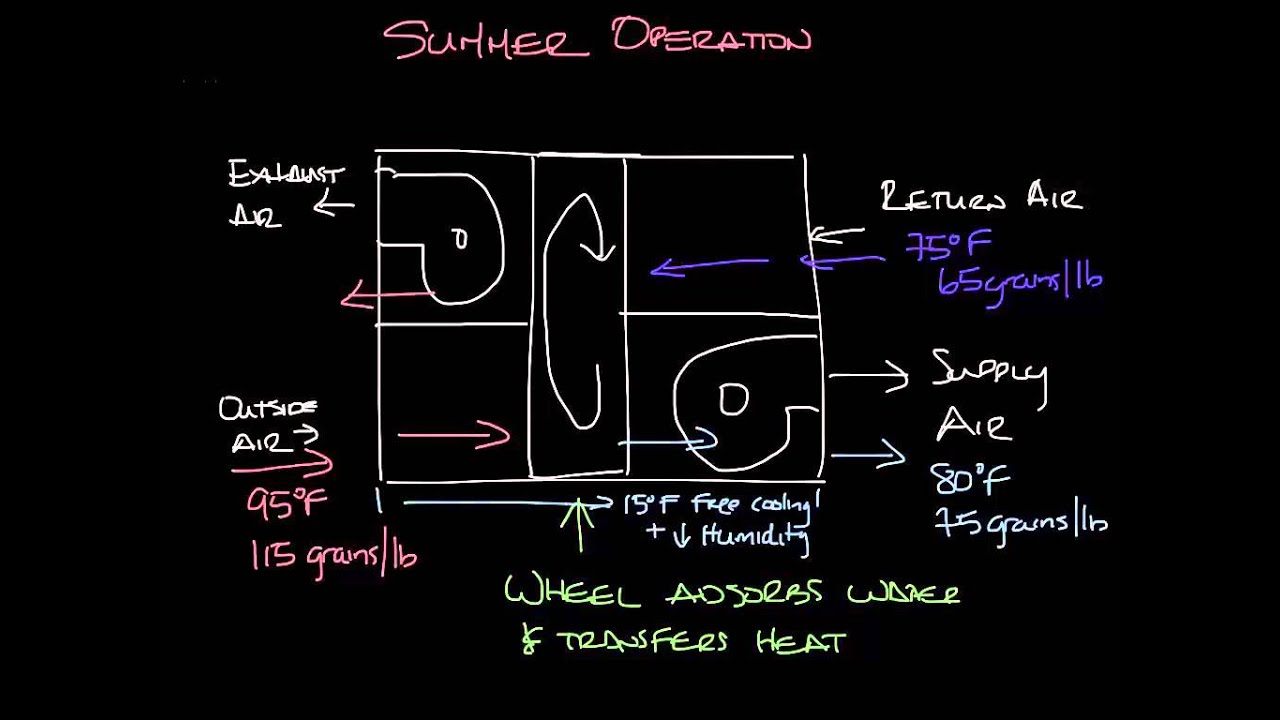 SUMMER OPERATION
EXHAUST
AIR
RETURN AIR
75°F
65 grains/lb
SUPPLY
AIR
80°F
75 grains/lb
OUTSIDE
AIR
95°F
115 grains/lb
15°F free cooling!
+ ↓ Humidity
WHEEL ADSORBS WATER
& TRANSFERS HEAT